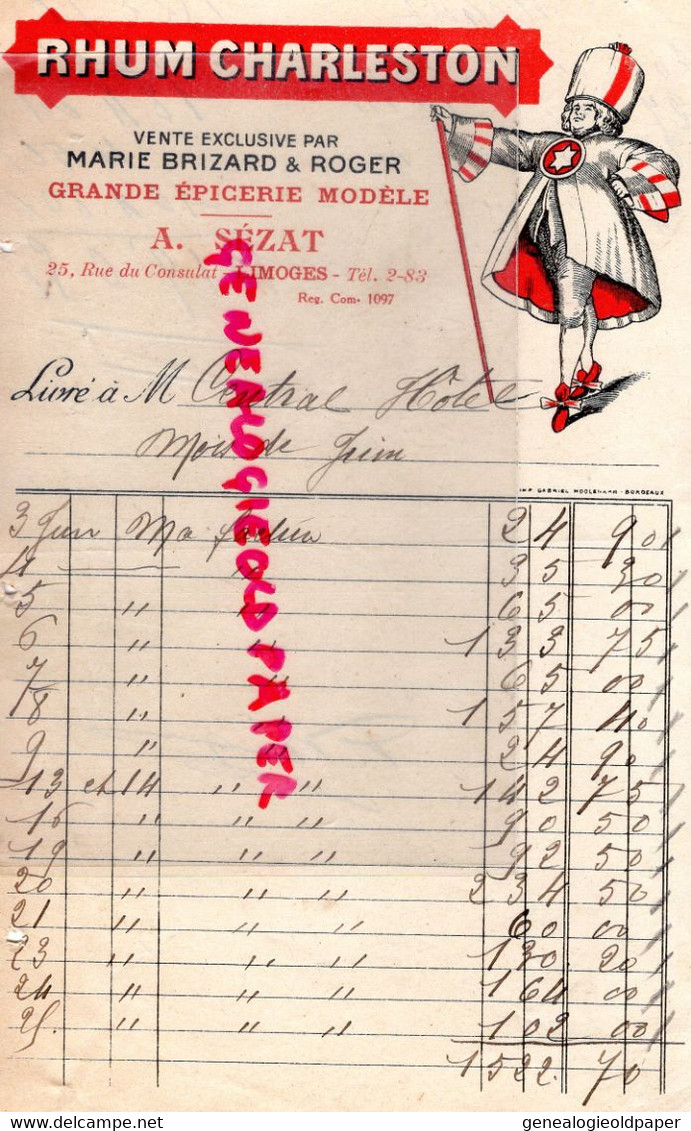 RHUM CHARLESTON
VENTE EXCLUSIVE PAR
MARIE BRIZARD & ROGER
GRANDE ÉPICERIE MODÈLE
A. SÉZAT
25, Rue du Consulat - LIMOGES - Tél. 2-83
Reg. Com. 1097
Livré à M Central Hôtel
Mois de Juin
IMP GABRIEL MOOLENAAR - BORDEAUX
3 Juin Ma facture 24 90
4 — " 35 30
5 " " 65 00
6 " " 133 75
7 " " 65 00
8 " " 157 40
9 " " 24 90
13 et 14 " " 142 75
16 " " " 90 50
19 " " " 92 50
20 " " " 234 50
21 " " " 60 00
23 " " " 130 20
24 " " " 164 00
25 " " " 102 00
1522 70
GENEALOGIEOLDPAPER
delcampe.net
genealogieoldpaper